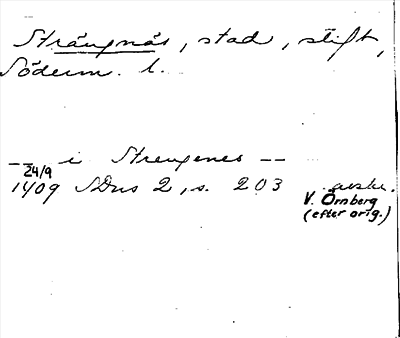 Strängnäs, stad, stift,
Söderm. l.
-- i Strengenes --
24/9
1409 SDns 2, s. 203 avskr.
V. Örnberg
(efter orig.)